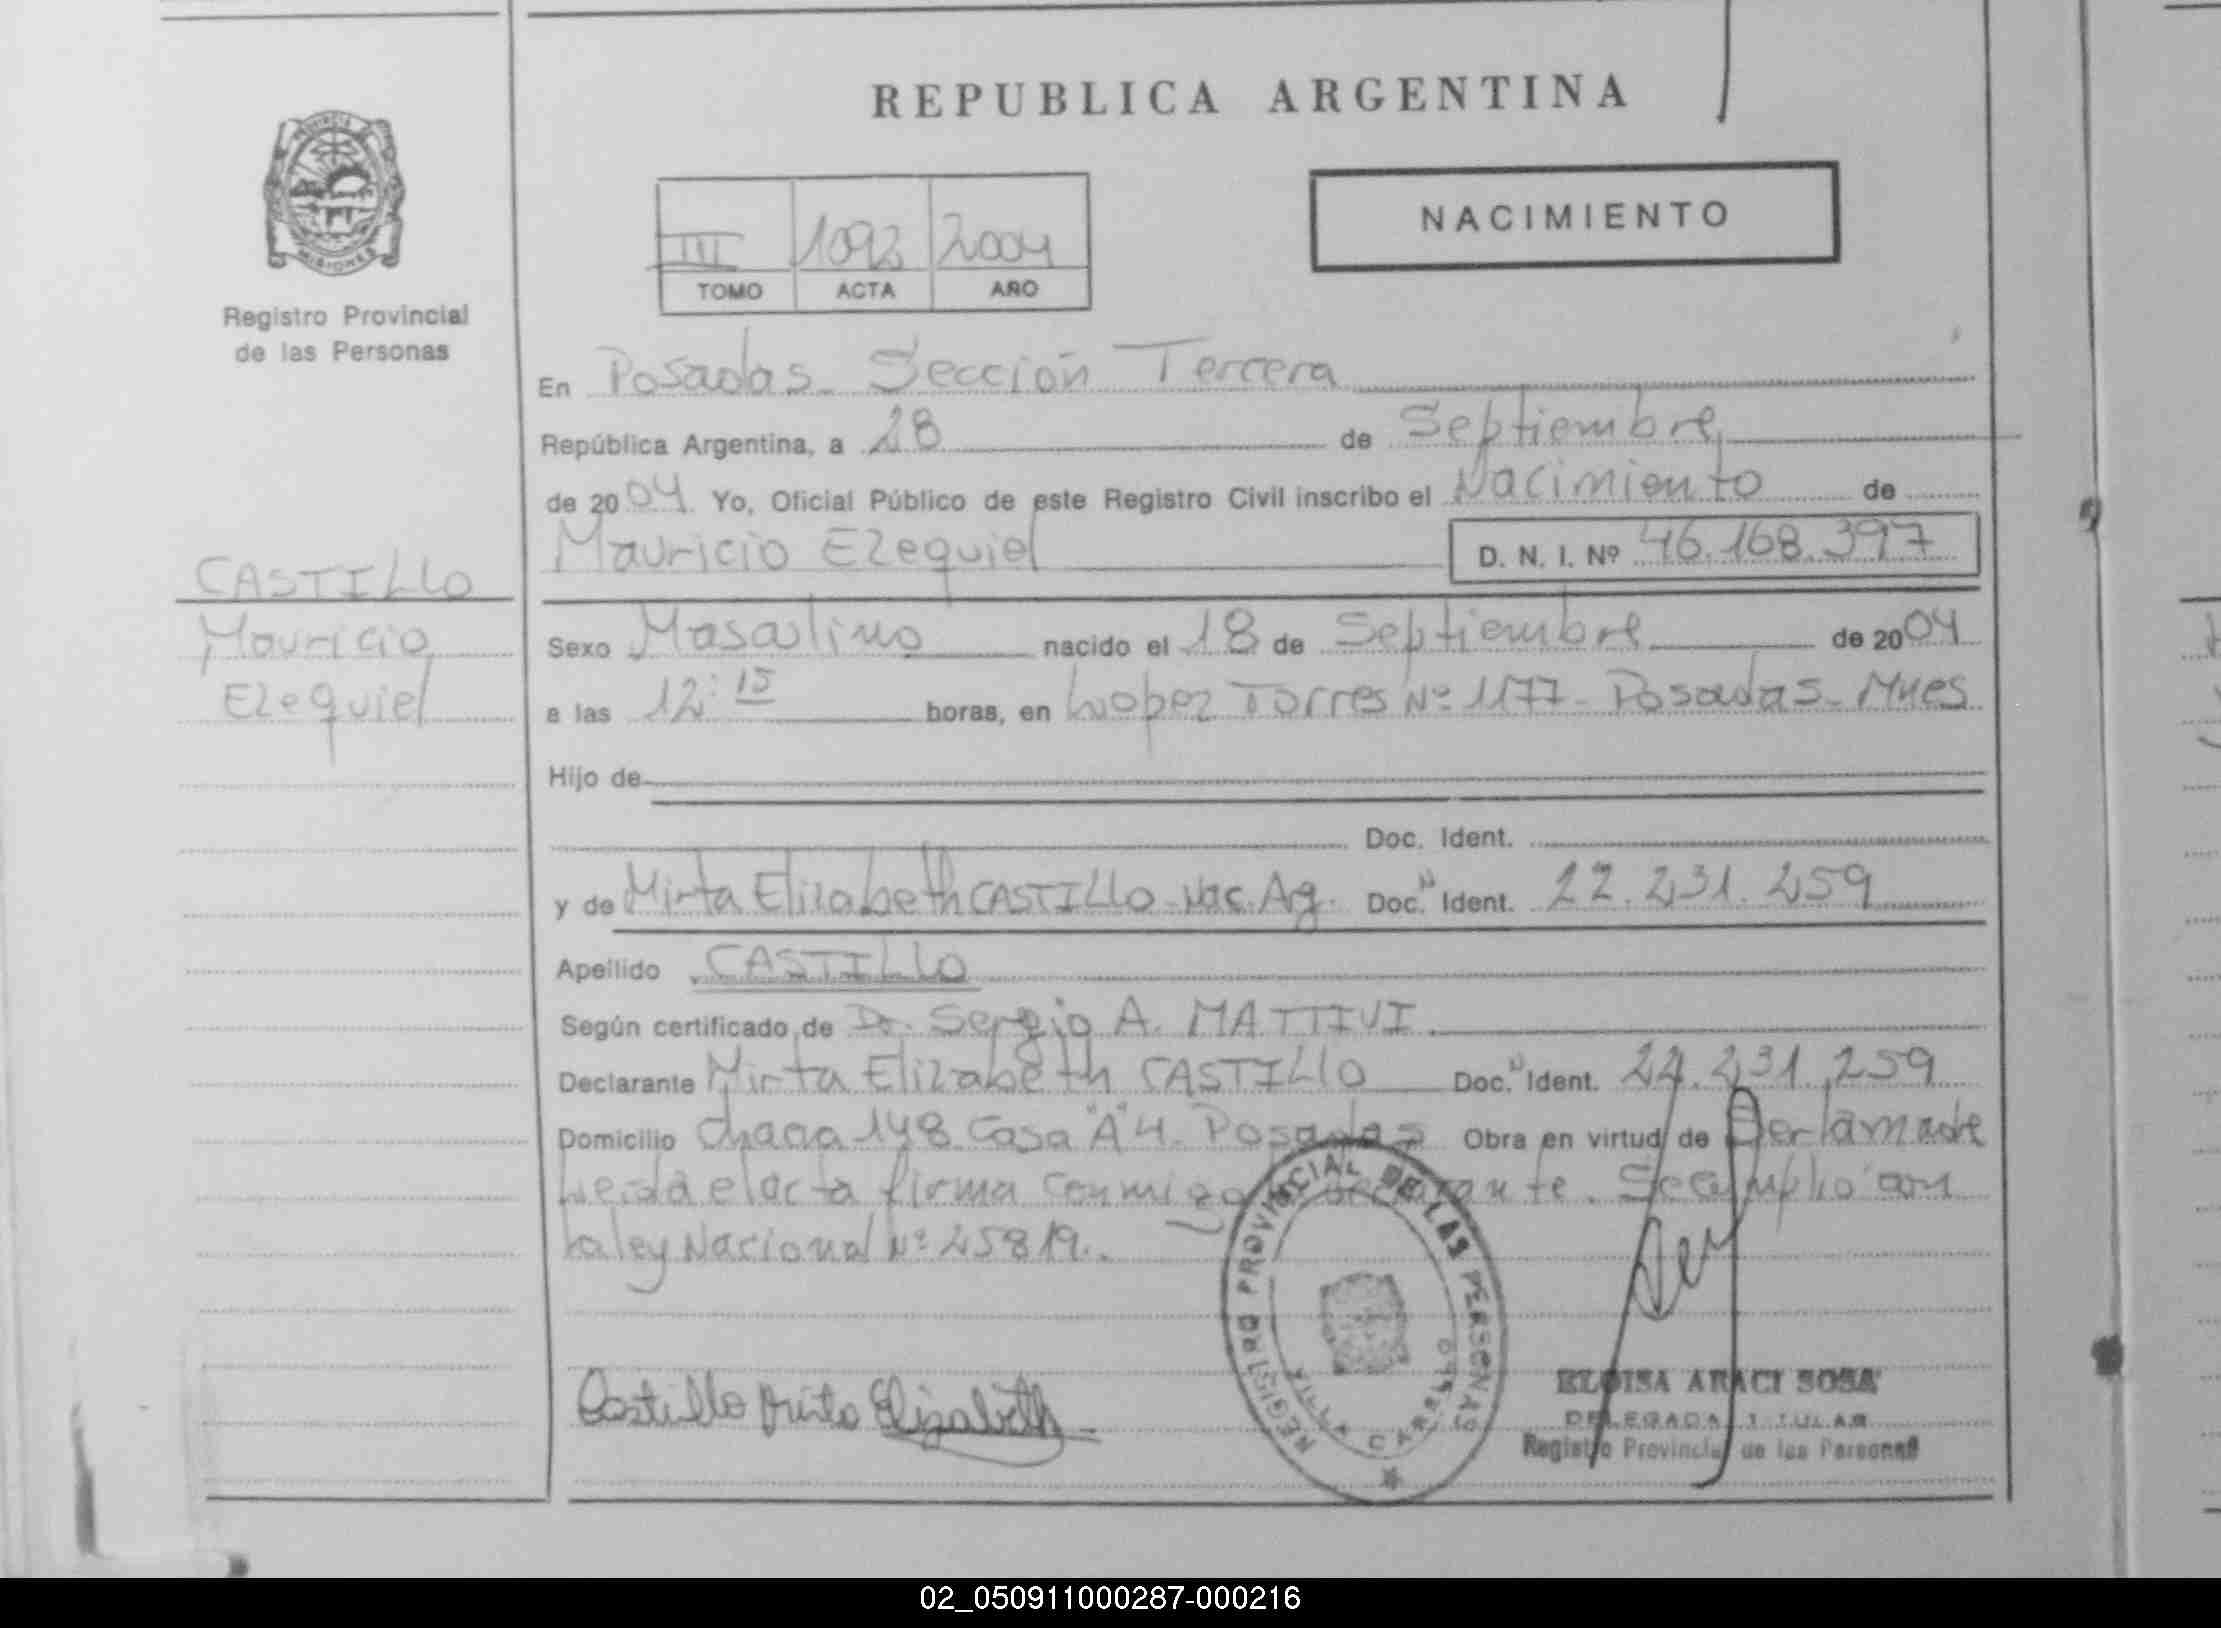 REPUBLICA ARGENTINA
PROVINCIA DE
MISIONES
Registro Provincial
de las Personas
NACIMIENTO
III 1093 2004
TOMO ACTA AÑO
En Posadas - Sección Tercera
República Argentina, a 28 de Septiembre
de 2004 Yo, Oficial Público de este Registro Civil inscribo el Nacimiento de
Mauricio Ezequiel D. N. I. Nº 46.168.397
CASTILLO
Mauricio
Ezequiel
Sexo Masculino nacido el 18 de Septiembre de 2004
a las 12:15 horas, en López Torres Nº 1177 - Posadas - Mnes
Hijo de
Doc. Ident.
y de Mirta Elizabeth CASTILLO - Nac. Arg. Doc. N Ident. 22.231.259
Apellido CASTILLO
Según certificado de Dr. Sergio A. MATTIVI
Declarante Mirta Elizabeth CASTILLO Doc. N Ident. 22.231.259
Domicilio Chaca 148 Casa "A" 4 - Posadas Obra en virtud de Ser la madre
Leida el acta firma conmigo declarante. Se cumplió con
la ley Nacional Nº 25819.
Castillo Mirta Elizabeth
REGISTRO PROVINCIAL DE LAS PERSONAS
VILLA CABELLO
ELOISA ARACI SOSA
DELEGADA TITULAR
Registro Provincial de las Personas
02_050911000287-000216